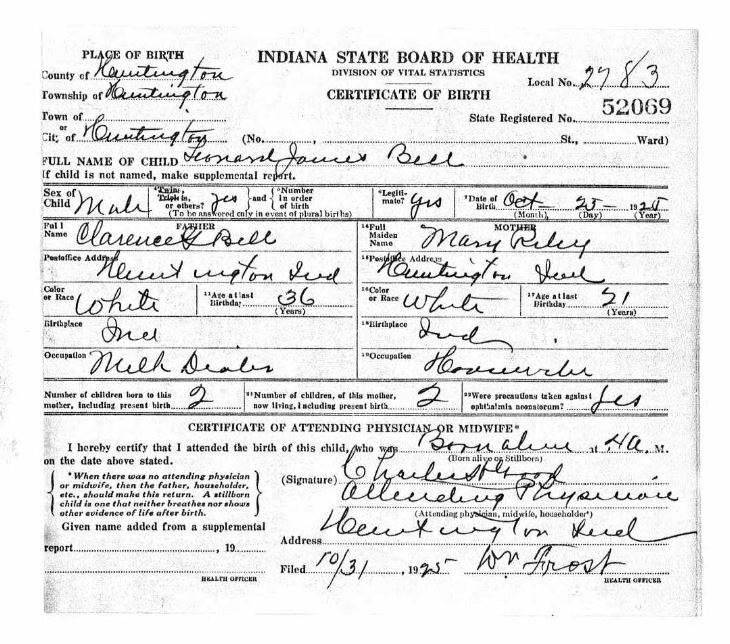 PLACE OF BIRTH
INDIANA STATE BOARD OF HEALTH
County of Huntington
DIVISION OF VITAL STATISTICS
Local No. 2783
Township of Huntington
CERTIFICATE OF BIRTH
52069
Town of
State Registered No.
or
City of Huntington (No. St., Ward)
FULL NAME OF CHILD Leonard James Bell
If child is not named, make supplemental report.
Sex of Child Male
Twins, Triplets, or others? Yes and Number in order of birth
(To be answered only in event of plural births)
Legitimate? Yes
Date of Birth Oct 25 1925
(Month) (Day) (Year)
FATHER
Full Name Clarence G Bell
MOTHER
Full Maiden Name Mary Riley
Postoffice Address Huntington Ind
Postoffice Address Huntington Ind
Color or Race White
Age at last Birthday 36
(Years)
Color or Race White
Age at last Birthday 21
(Years)
Birthplace Ind
Birthplace Ind
Occupation Milk Dealer
Occupation Housewife
Number of children born to this mother, including present birth 2
Number of children, of this mother, now living, including present birth 2
Were precautions taken against ophthalmia neonatorum? Yes
CERTIFICATE OF ATTENDING PHYSICIAN OR MIDWIFE*
I hereby certify that I attended the birth of this child, who was Born alive at 4 A. M.
on the date above stated.
(Born alive or Stillborn)
* When there was no attending physician
or midwife, then the father, householder,
etc., should make this return. A stillborn
child is one that neither breathes nor shows
other evidence of life after birth.
(Signature) Charles
Attending Physician
(Attending physician, midwife, householder*)
Given name added from a supplemental
report , 19
Address Huntington Ind
HEALTH OFFICER
Filed 10/31, 1925 Wm Frost
HEALTH OFFICER